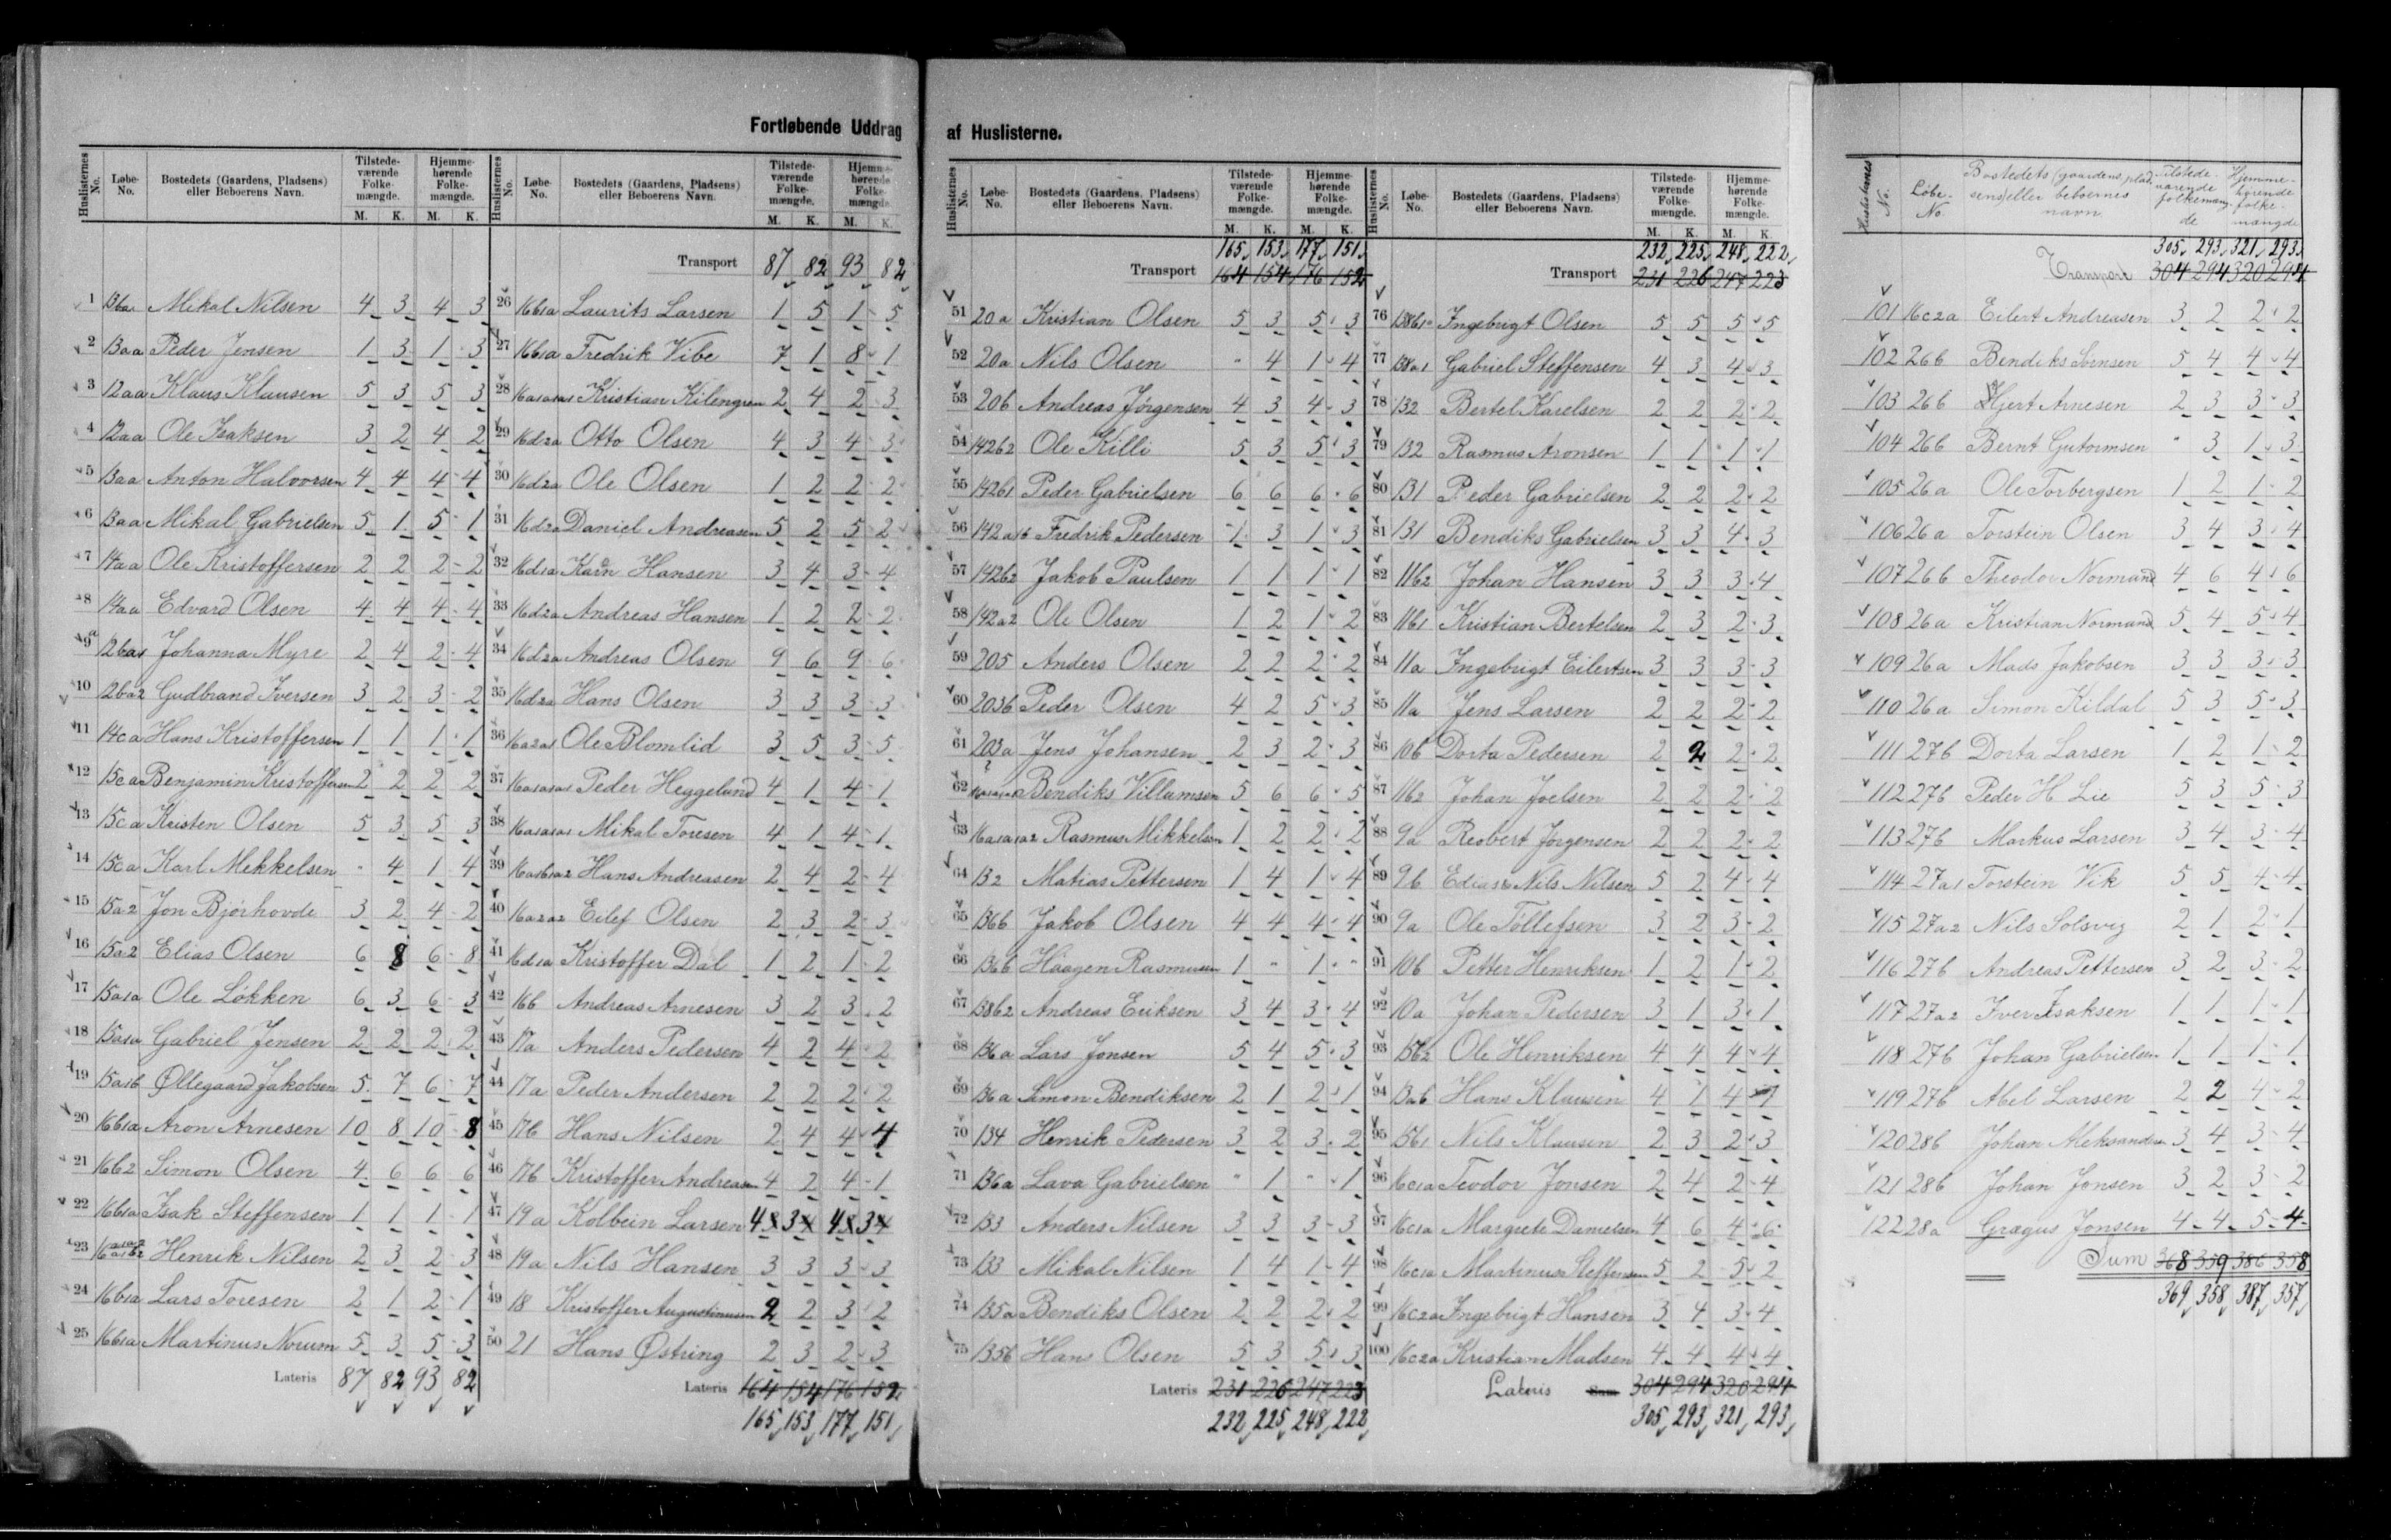 Fortløbende Uddrag af Huslisterne.
Huslisternes No. Løbe-No. Bostedets (Gaardens, Pladsens) eller Beboerens Navn. Tilstedeværende Folkemængde. M. K. Hjemmehørende Folkemængde. M. K.
1 Mikal Nilsen 4 3 4 3
2 13aa Peder Jensen 1 3 1 3
3 12aa Klaus Klausen 5 3 5 3
4 12aa Ole Isaksen 3 2 4 2
5 13aa Anton Halvorsen 4 4 4 4
6 13aa Mikal Gabrielsen 5 1 5 1
7 14aa Ole Kristoffersen 2 2 2 2
8 14aa Edvard Olsen 4 4 4 4
9 12ba1 Johanna Myre 2 4 2 4
10 12ba2 Gudbrand Iversen 3 2 3 2
11 14ca Hans Kristoffersen 1 1 1 1
12 15ca Benjamin Kristoffersen 2 2 2 2
13 15ca Kristen Olsen 5 3 5 3
14 15ca Karl Mekkelsen - 4 1 4
15 15a2 Jon Bjørhovde 3 2 4 2
16 15a2 Elias Olsen 6 8 6 8
17 15a1a Ole Løkken 6 3 6 3
18 15a1a Gabriel Jensen 2 2 2 2
19 15a1b Øllegaard Jakobsen 5 7 6 7
20 16b1a Aron Arnesen 10 8 10 8
21 16b2 Simon Olsen 4 6 6 6
22 16b1a Isak Steffensen 1 1 1 1
23 Henrik Nilsen 2 3 2 3
24 16b1a Lars Toresen 2 1 2 1
25 16b1a Martinus Norum 5 3 5 3
Lateris 87 82 93 82
Huslisternes No. Løbe-No. Bostedets (Gaardens, Pladsens) eller Beboerens Navn. Tilstedeværende Folkemængde. M. K. Hjemmehørende Folkemængde. M. K.
Transport 87 82 93 82
26 16b1a Laurits Larsen 1 5 1 5
27 16b1a Fredrik Vibe 7 1 8 1
28 16a1a1a1 Kristian Kilengren 2 4 2 3
29 16d2a Otto Olsen 4 3 4 3
30 16d2a Ole Olsen 1 2 2 2
31 16d2a Daniel Andreasen 5 2 5 2
32 16d1a Hansen 3 4 3 4
33 16d2a Andreas Hansen 1 2 2 2
34 16d2a Andreas Olsen 9 6 9 6
35 16d2a Hans Olsen 3 3 3 3
36 16a2a1 Ole Blomlid 3 5 3 5
37 16a1a1a1 Peder Heggelund 4 1 4 1
38 16a1a1a1 Mikal Toresen 4 1 4 1
39 16a1b1a2 Hans Andreasen 2 4 2 4
40 16a2a2 Eilef Olsen 2 3 2 3
41 16d1a Kristoffer Dal 1 2 1 2
42 16b Andreas Arnesen 3 2 3 2
43 17a Anders Pedersen 4 2 4 2
44 17a Peder Andersen 2 2 2 2
45 17b Hans Nilsen 2 4 4 4
46 17b Kristoffer Andreasen 4 2 4 1
47 19a Kolbein Larsen 4 3 4 3
48 19a Nils Hansen 3 3 3 3
49 18 Kristoffer Augustinusen 2 2 3 2
50 21 Hans Østring 2 3 2 3
Lateris 164 154 176 152
165 153 177 151
Huslisternes No. Løbe-No. Bostedets (Gaardens, Pladsens) eller Beboerens Navn. Tilstedeværende Folkemængde. M. K. Hjemmehørende Folkemængde. M. K.
165 153 177 151
Transport 164 154 176 152
51 20a Kristian Olsen 5 3 5 3
52 20a Nils Olsen " 4 1 4
53 20b Andreas Jørgensen 4 3 4 3
54 142b2 Ole Killi 5 3 5 3
55 142b1 Peder Gabrielsen 6 6 6 6
56 142a1b Fredrik Pedersen 1 3 1 3
57 142b2 Jakob Paulsen 1 1 1 1
58 142a2 Ole Olsen 1 2 1 2
59 205 Anders Olsen 2 2 2 2
60 203b Peder Olsen 4 2 5 3
61 203a Jens Johansen 2 3 2 3
62 Bendiks Villumsen 5 6 6 5
63 16a1a1a2 Rasmus Mikkelsen 1 2 2 2
64 132 Matias Pettersen 1 4 1 4
65 136b Jakob Olsen 4 4 4 4
66 136b Haagen Rasmussen 1 " 1 "
67 138b2 Andreas Eriksen 3 4 3 4
68 136a Lars Jonsen 5 4 5 3
69 136a Simon Bendiksen 2 1 2 1
70 134 Henrik Pedersen 3 2 3 2
71 136a Lava Gabrielsen " 1 " 1
72 133 Anders Nilsen 3 3 3 3
73 133 Mikal Nilsen 1 4 1 4
74 135a Bendiks Olsen 2 2 2 2
75 135b Hans Olsen 5 3 5 3
Lateris 231 226 247 223
232 225 248 222
Huslisternes No. Løbe-No. Bostedets (Gaardens, Pladsens) eller Beboerens Navn. Tilstedeværende Folkemængde. M. K. Hjemmehørende Folkemængde. M. K.
232 225 248 222
Transport 231 226 247 223
76 Ingebrigt Olsen 5 5 5 5
77 138a1 Gabriel Steffensen 4 3 4 3
78 132 Bertel Karelsen 2 2 2 2
79 132 Rasmus Aronsen 1 1 1 1
80 131 Peder Gabrielsen 2 2 2 2
81 131 Bendiks Gabrielsen 3 3 4 3
82 11b2 Johan Hansen 3 3 3 4
83 11b1 Kristian Bertelsen 2 3 2 3
84 11a Ingebrigt Eilertsen 3 3 3 3
85 11a Jens Larsen 2 2 2 2
86 10b Dorta Pedersen 2 2 2 2
87 11b2 Johan Joelsen 2 2 2 2
88 9a Reobert Jørgensen 2 2 2 2
89 9b Nils Nilsen 5 2 4 4
90 9a Ole Tøllefsen 3 2 3 2
91 10b Petter Henriksen 1 2 1 2
92 10a Johan Pedersen 3 1 3 1
93 Ole Henriksen 4 4 4 4
94 13ab Hans Klausen 4 1 4 1
95 Nils Klausen 2 3 2 3
96 16c1a Teodor Jonsen 2 4 2 4
97 16c1a Margrete Danielsen 4 6 4 6
98 16c1a Martinus Steffensen 5 2 5 2
99 16c2a Ingebrigt Hansen 3 4 3 4
100 16c2a Kristian Madsen 4 4 4 4
Lateris Sum 304 294 320 294
305 293 321 293
Huslisternes No. Løbe-No. Bostedets (gaardens, pladsens) eller beboernes navn. Tilstedeværende folkemængde Hjemmehørende folkemængde
305 293 321 293
Transport 304 294 320 294
101 16c2a Eilert Andreasen 3 2 2 2
102 26b Bendiks Sørnsen 5 4 4 4
103 26b Hjert Arnesen 2 3 3 3
104 26b Bernt Gutormsen " 3 1 3
105 26a Ole Torbergsen 1 2 1 2
106 26a Torstein Olsen 3 4 3 4
107 26b Theodor Normand 4 6 4 6
108 26a Kristian Normand 5 4 5 4
109 26a Mads Jakobsen 3 3 3 3
110 26a Simon Kildal 5 3 5 3
111 27b Dorta Larsen 1 2 1 2
112 27b Peder H Lie 5 3 5 3
113 27b Markus Larsen 3 4 3 4
114 27a1 Torstein Vik 5 5 4 4
115 27a2 Nils Solsvig 2 1 2 1
116 27b Andreas Pettersen 3 2 3 2
117 27a2 Iver Isaksen 1 1 1 1
118 27b Johan Gabrielsen 1 1 1 1
119 27b Abel Larsen 2 2 4 2
120 28b Johan Aleksandersen 3 4 3 4
121 28b Johan Jonsen 3 2 3 2
122 28a Gragus Jonsen 4 4 5 4
Sum 368 359 386 358
369 358 387 357